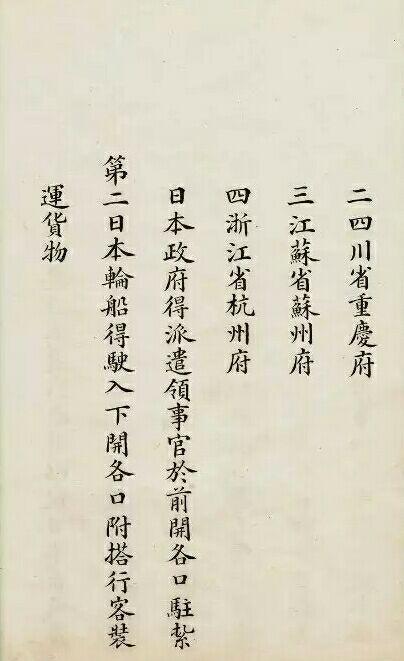 二四川省重慶府
三江蘇省蘇州府
四浙江省杭州府
日本政府得派遣領事官於前開各口駐紮
第二日本輪船得駛入下開各口附搭行客裝
運貨物